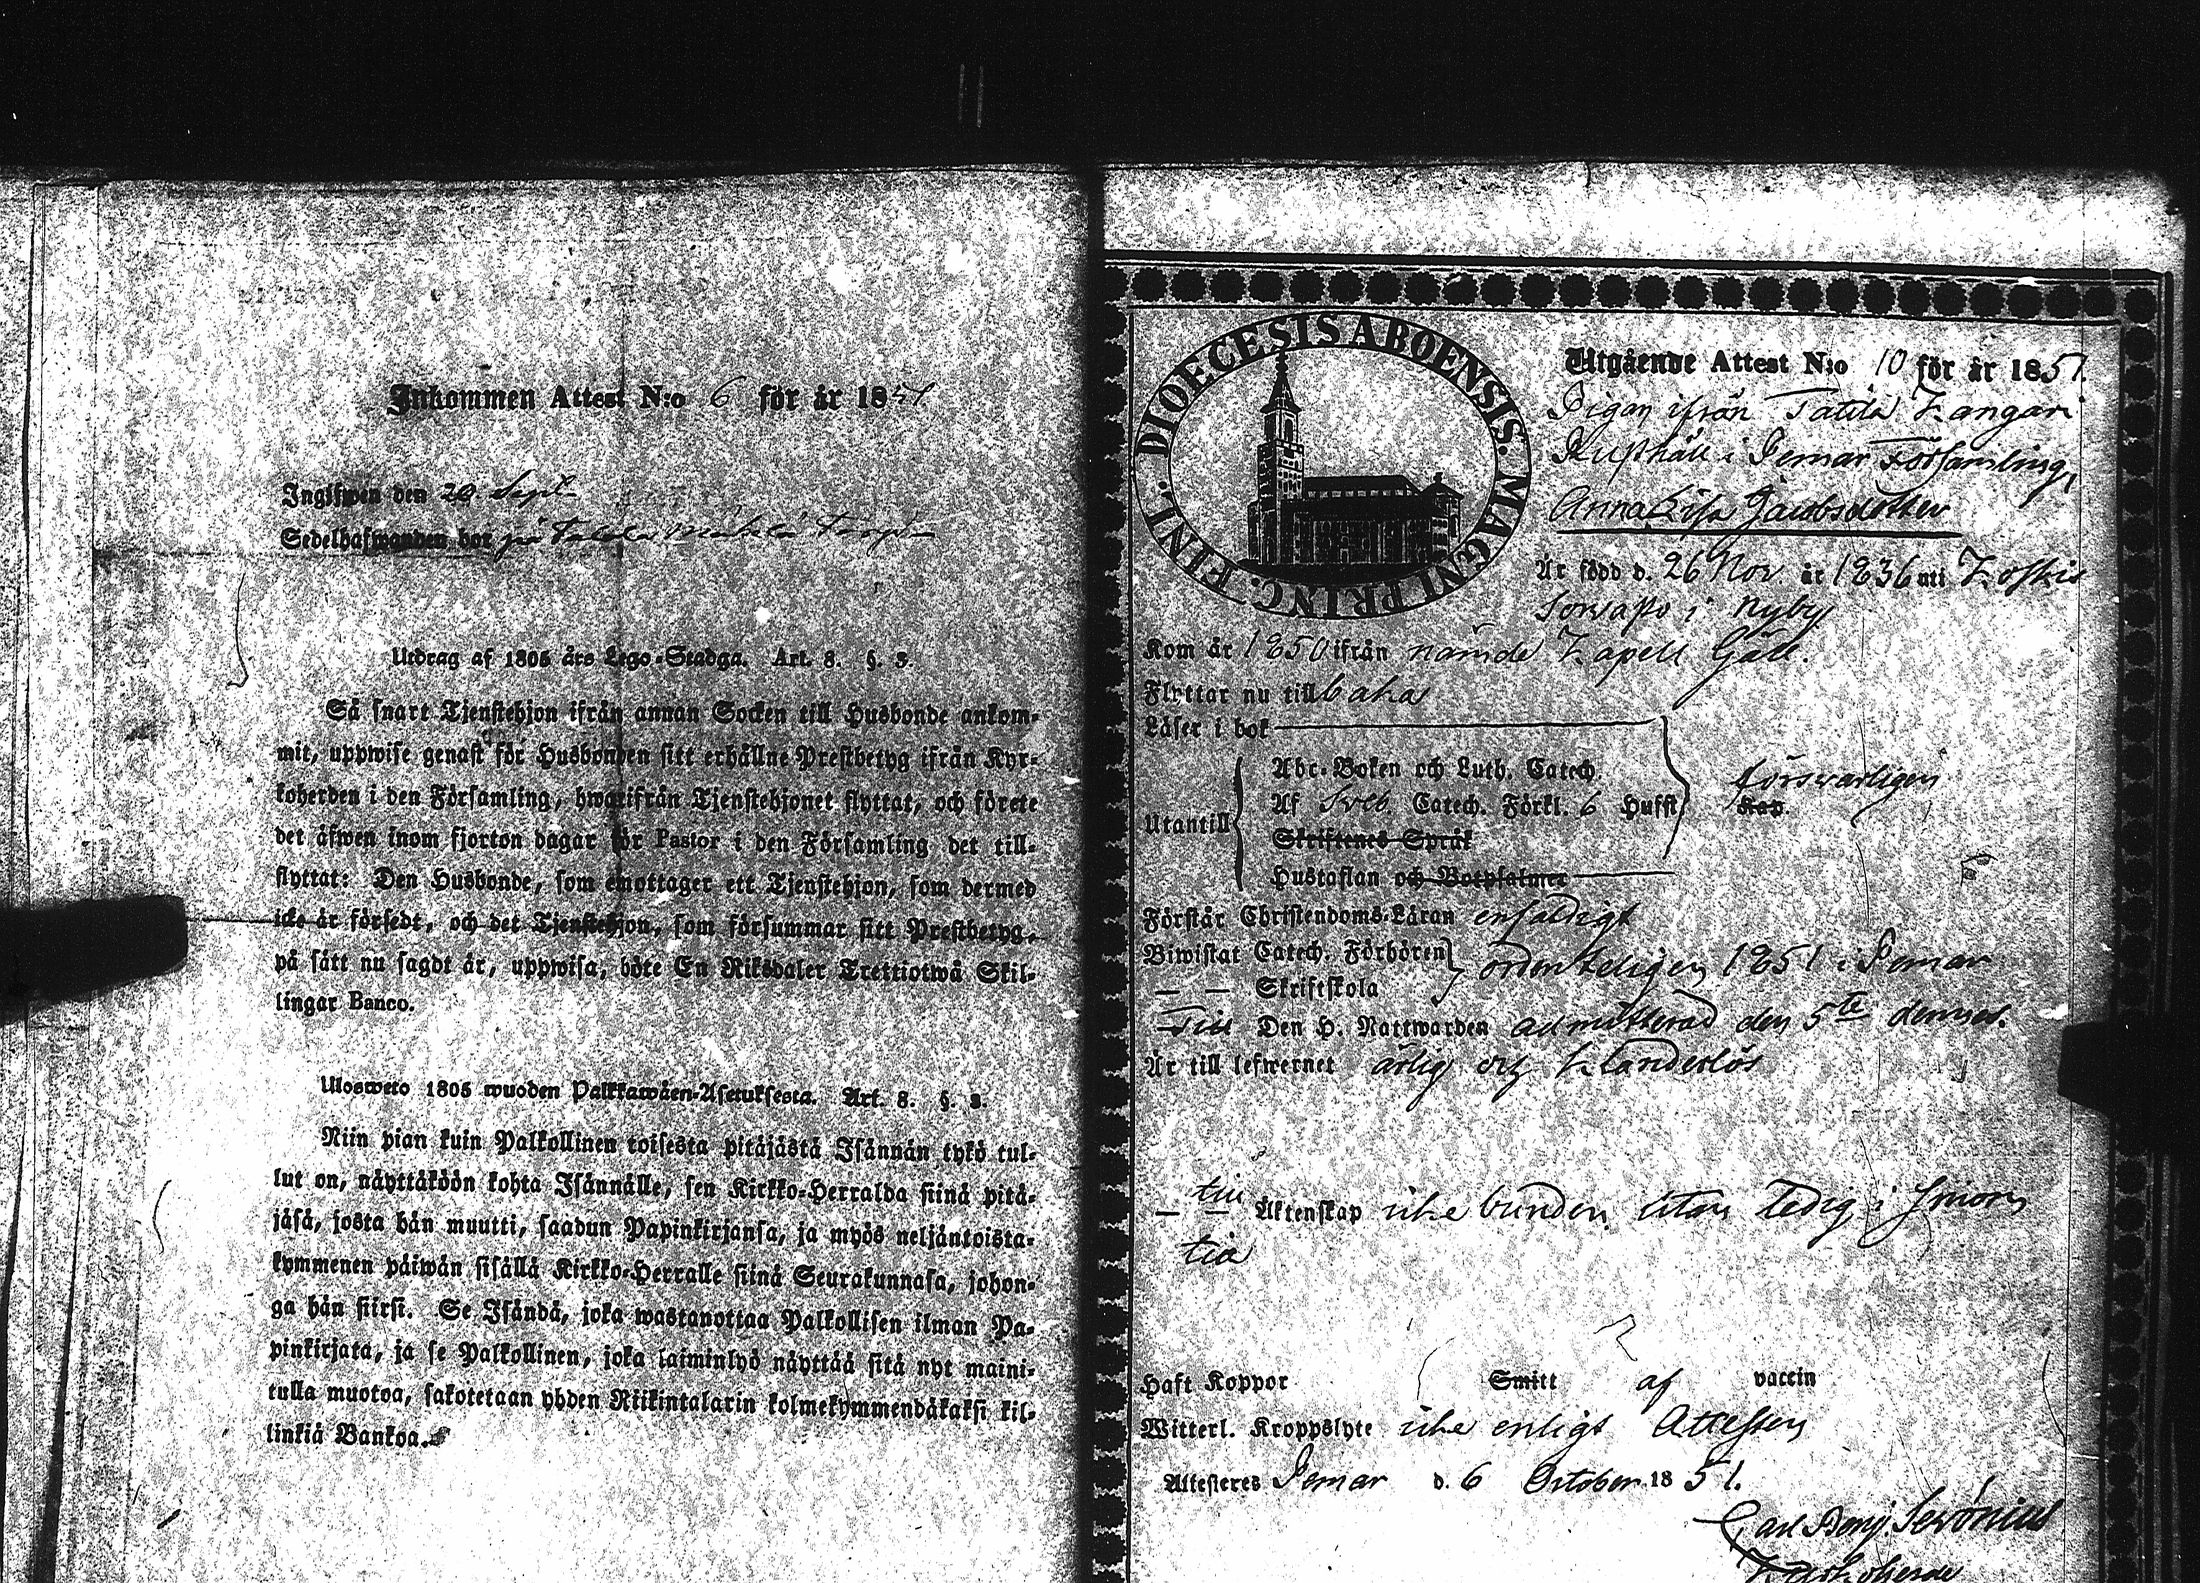 Inkommen Attest N:o 6 för år 18
Ingifwen den 20. Sept.
Sedelhafwanden bor på
Utdrag af 1805 års Lego-Stadga. Art. 8. §. 3.
Så snart Tjenstehjon ifrån annan Socken till Husbonde ankom-
mit, uppwise genast för Husbonden sitt erhållne Prestbetyg ifrån Kyr-
koherden i den Församling, hwarifrån Tjenstehjonet flyttat, och förete
det äfwen inom fjorton dagar för Pastor i den Församling det till-
flyttat: Den Husbonde, som emottager ett Tjenstehjon, som dermed
icke är försedt, och det Tjenstehjon, som försummar sitt Prestbetyg,
på sätt nu sagdt är, uppwisa, böte En Riksdaler Trettiotwå Skil-
lingar Banco.
Ulosweto 1805 wuoden Palkkawäen-Asetuksesta. Art. 8. §. 3.
Niin pian kuin Palkollinen toisesta pitäjästä Isännän tykö tul-
lut on, näyttäköön kohta Isännälle, sen Kirkko-Herralda siinä pitä-
jäsä, josta hän muutti, saadun Papinkirjansa, ja myös neljäntoista-
kymmenen päiwän sisällä Kirkko-Herralle siinä Seurakunnasa, johon-
ga hän siirsi. Se Isändä, joka wastanottaa Palkollisen ilman Pa-
pinkirjata, ja se Palkollinen, joka laiminlyö näyttää sitä nyt maini-
tulla muotoa, sakotetaan yhden Riikintalarin kolmekymmendäkaksi kil-
linkiä Bankoa.
DIOECESIS ABOENSIS. MAGNI PRINC. FINL.
Utgående Attest N:o 10 för år 1851.
Pigan ifrån Tatila Kangari
Rusthåll i Pemar Församling,
Anna Lisa Jacobsdotter
Är född d. 26 Nov. år 1836 uti Koskis
i Nyby
Kom år 1850 ifrån nämde Kapell Gäll.
Flyttar nu tillbaka
Läser i bok
Abc-Boken och Luth. Catech.
Utantill Af Sveb. Catech. Förkl. 6 Hufst försvarligen
Kap.
Skriftenes Språk
Hustaflan och Botpsalmer
Förstår Christendoms-Läran enfaldigt
Biwistat Catech. Förhören ordenteligen 1851 i Pemar
— — Skriftskola
Till Den H. Nattwarden admitterad den 5te dennes.
Är till lefwernet ärlig och klanderlös
— — till Äktenskap icke bunden utan ledig i
Haft Koppor Smitt af vaccin
Witterl. Kroppslyte icke enligt Attesten
Attesteres Pemar d. 6 October 1851.
Carl Benj.